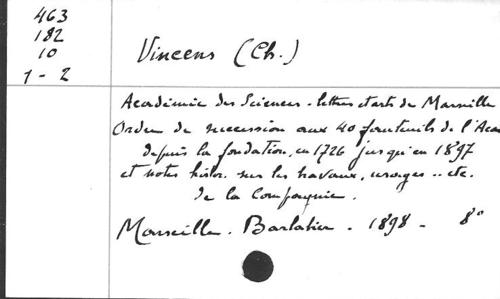 463
182
10
1-2
Vincens (Ch.)
Académie des Sciences - lettres et arts de Marseille
Ordre de succession aux 40 fauteuils de l'Aca
depuis la fondation, en 1726 jusqu'en 1897
et notes histor. sur les travaux, usages .. etc.
de la Compagnie.
Marseille. Barlatier - 1898 - 8°